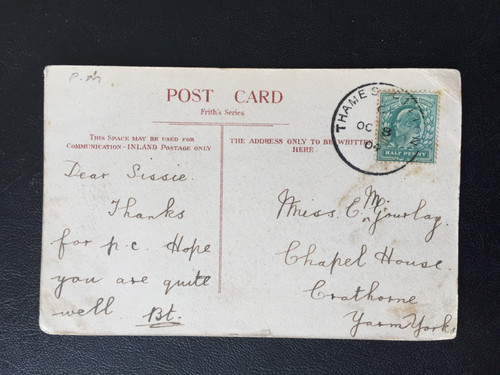 POST CARD
Frith's Series
THIS SPACE MAY BE USED FOR
COMMUNICATION - INLAND POSTAGE ONLY
THE ADDRESS ONLY TO BE WRITTEN
HERE.
THAMES
OC 8
HALF PENNY
Dear Sissie.
Thanks
for p.c. Hope
you are quite
well. Bt.
Miss. E. M.
Chapel House.
Crathorne
Yarm Yorks.